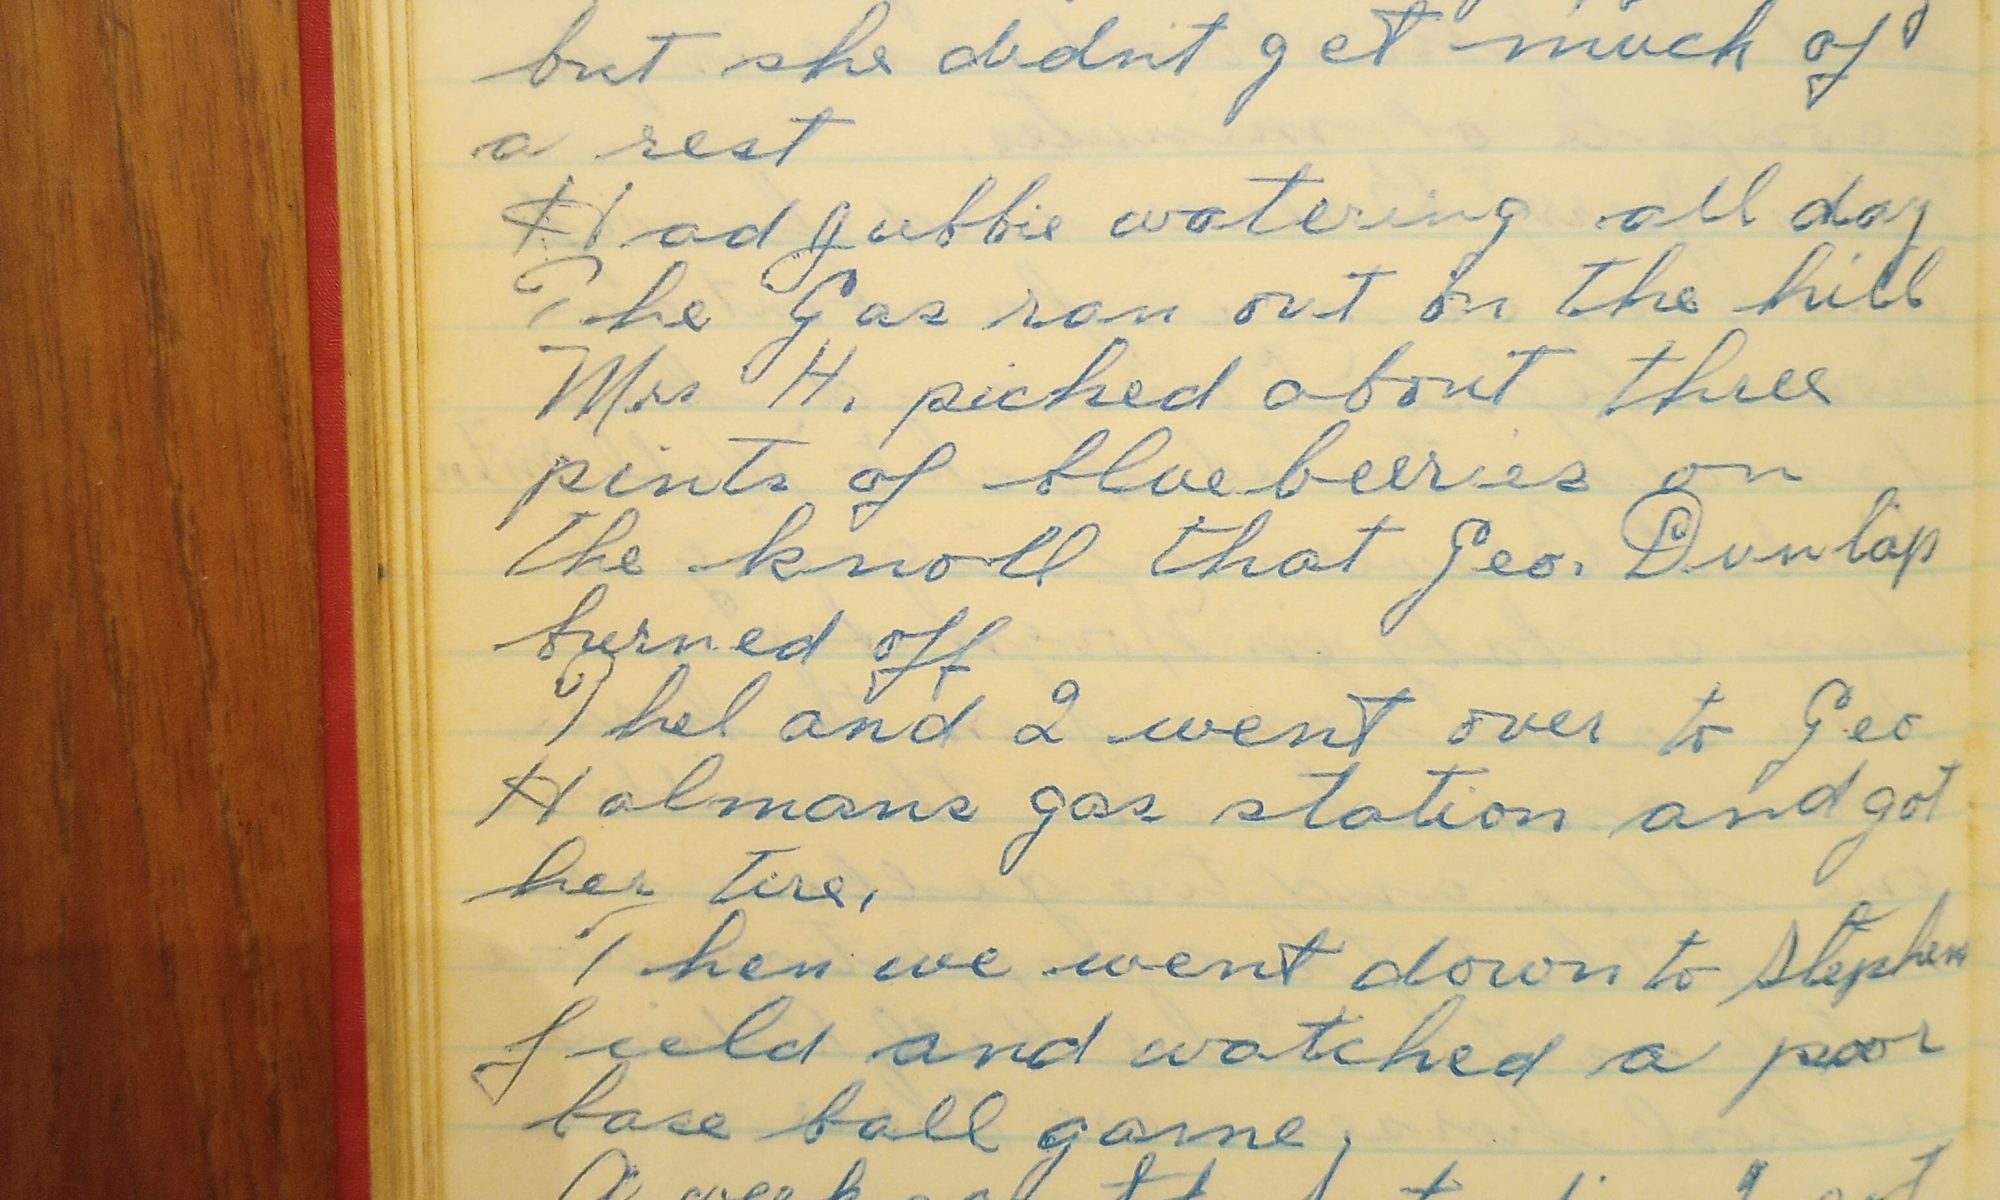 but she didnt get much of
a rest
Had Gubbie watering all day
The Gas ran out on the hill
Mrs H. picked about three
pints of blue beeries on
the knoll that Geo. Dunlap
burned off
Thel and I went over to Geo
Holmans gas station and got
her tire,
Then we went down to Stephen
field and watched a poor
base ball game,
A week